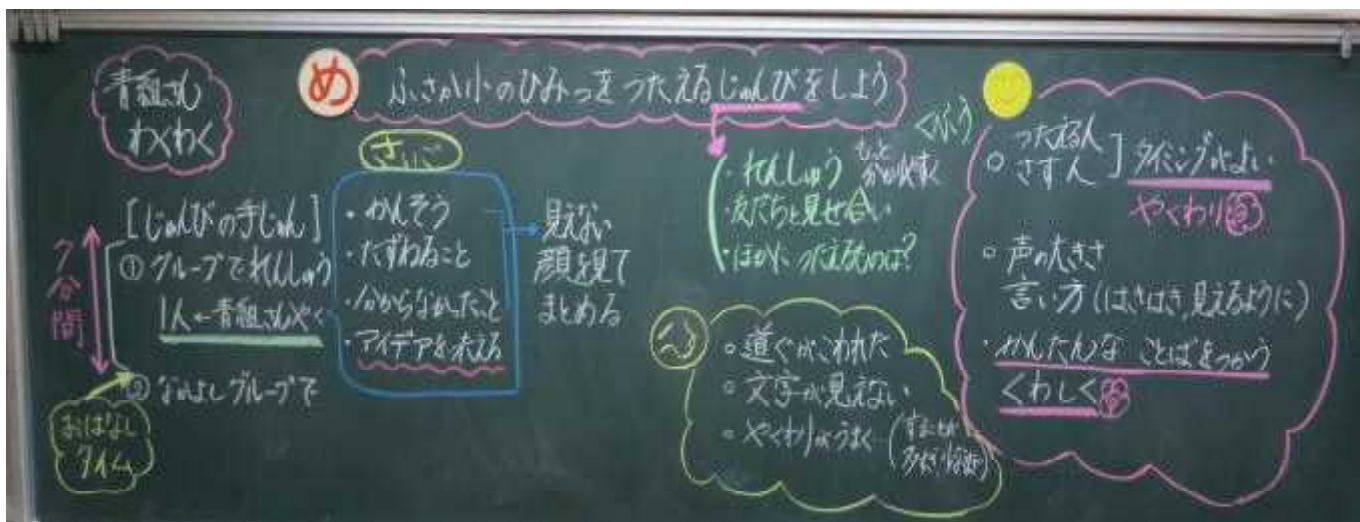 青組さん
わくわく
め
ふさか小のひみつをつたえるじゅんびをしよう
[じゅんびの手じゅん]
7分間
① グループでれんしゅう
1人←青組さんやく
② なかよしグループで
おはなし
タイム
さいご
・かんそう
・たずねること
・分からなかったこと
・アイデアを伝える
見えない
顔を見て
まとめる
くふう
・れんしゅう
もっと
・友だちと見せ合い
・ほかに つたえるのは?
○道ぐがこわれた
○文字が見えない
○やくわりがうまく
○つたえる人
さす人
タイミングがよい
やくわり
○声の大きさ
言い方(はきはき,見えるように)
・かんたんな ことばをつかう
くわしく